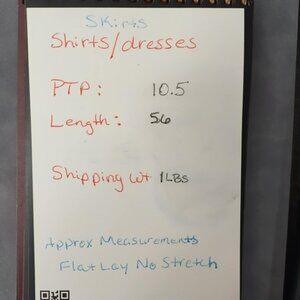 Skirts
Shirts/dresses
PTP: 10.5
Length: 56
Shipping wt 1LBS
Approx Measurements
Flat Lay No Stretch